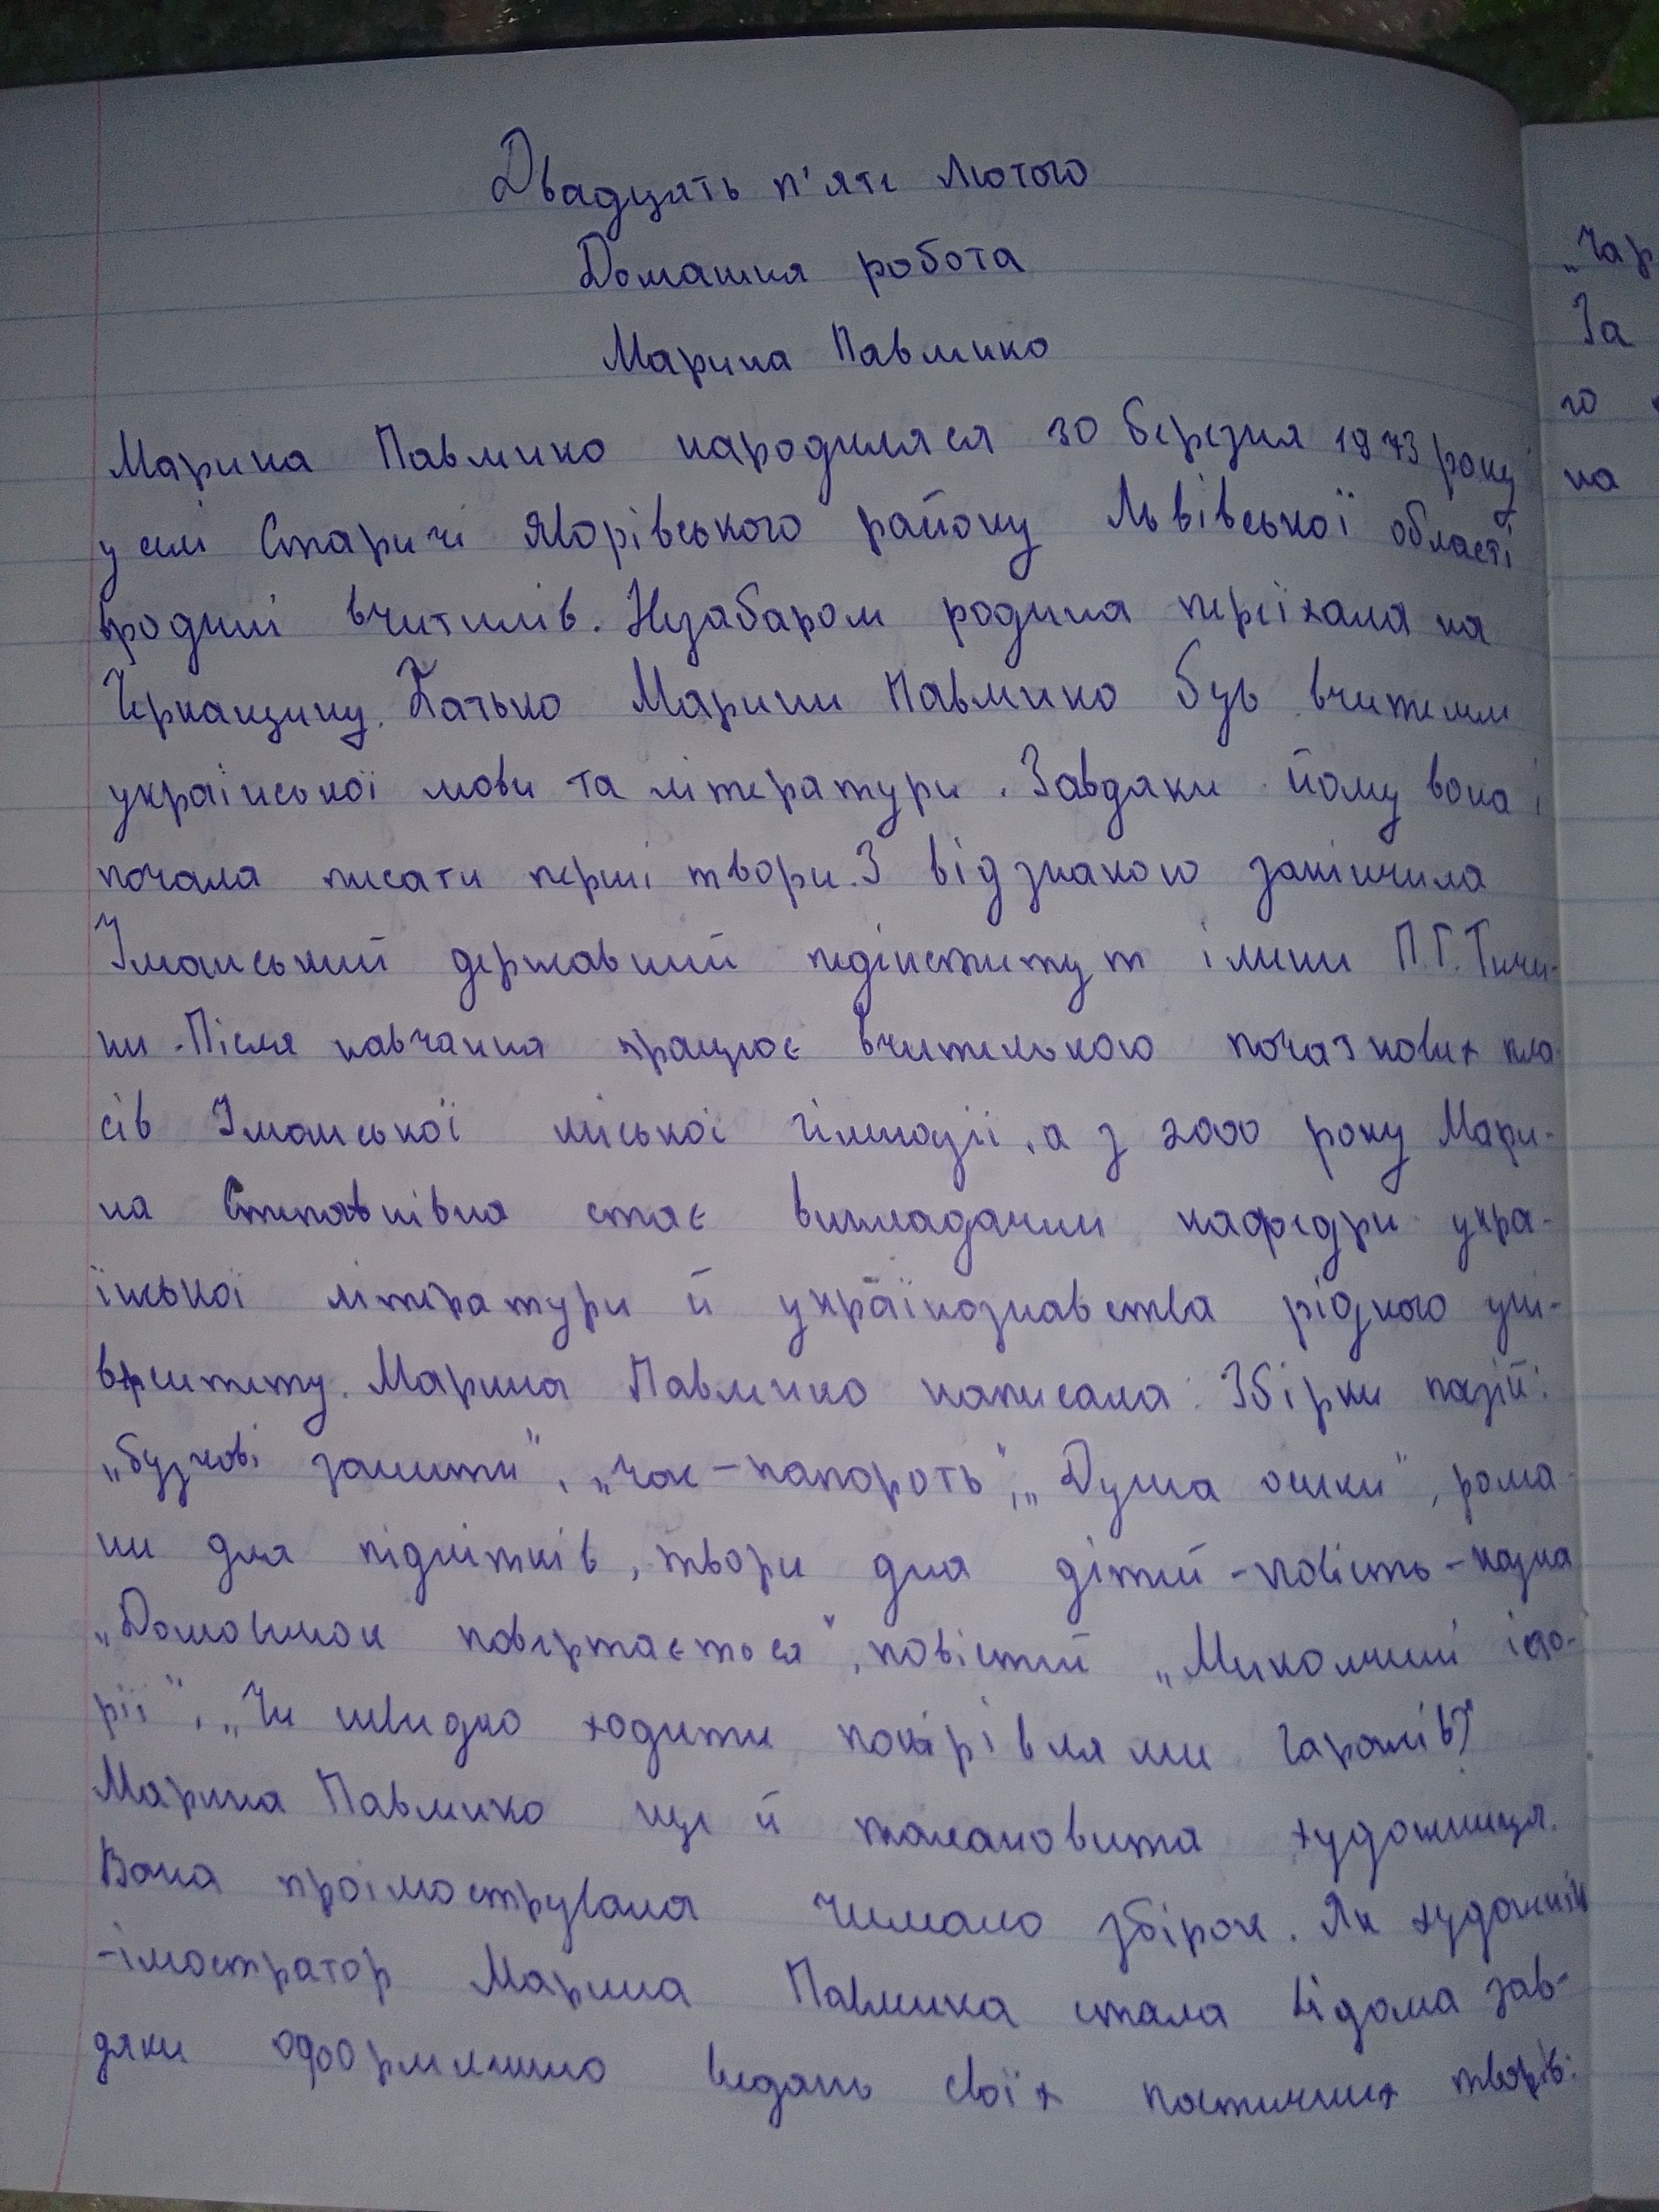 Двадцять п'яте лютого
Домашня робота
Марина Павленко
Марина Павленко народилася 30 березня 1973 року
у селі Старичі Яворівського району Львівської області
в родині вчителів. Незабаром родина переїхала на
Черкащину. Батько Марини Павленко був вчителем
української мови та літератури. Завдяки йому вона і
почала писати перші твори. З відзнакою закінчила
Уманський державний педінститут імени П.Г. Тичи-
ни. Після навчання працює вчителькою початкових кла-
сів Уманської міської гімназії, а з 2000 року Мари-
на Степанівна стає викладачем кафедри укра-
їнської літератури й українознавства рідного уні-
верситету. Марина Павленко написала: Збірки поезій:
„Бузкові замети", „Чар-папороть", „Душа осики", рома-
ни для підлітків, твори для дітей - повість - казка
„Домовичок повертається", повістей „Миколчині істо-
рії", „Чи швидко ходити покрівлями гаражів?"
Марина Павленко ще й талановита художниця.
Вона проілюструвала чимало збірок. Як художник
-ілюстратор Марина Павленка стала відома зав-
дяки оформленню видань своїх поетичних творів:
„Чар
За
го
на